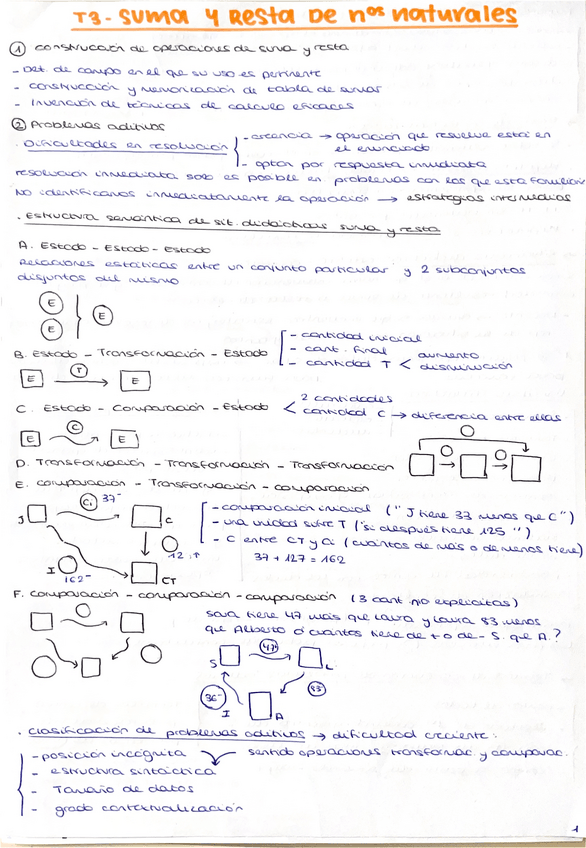 T3 - SUMA Y RESTA DE nos naturales
① construcción de operaciones de suma y resta
- Det. de campo en el que su uso es pertinente
- construcción y memorización de tabla de sumar
- Invención de técnicas de cálculo eficaces
② Problemas aditivos
. Dificultades en resolución
- creencia → operación que resuelve está en el enunciado
- optan por respuesta inmediata
resolución inmediata solo es posible en problemas con los que está familiar
No identificamos inmediatamente la operación → estrategias intermedias
. Estructura semántica de sit. didácticas suma y resta
A. Estado - Estado - Estado
Relaciones estáticas entre un conjunto particular y 2 subconjuntos
disjuntos del mismo
E
E
E
B. Estado - Transformación - Estado
- cantidad inicial
- cant. final
- cantidad T < aumento
disminución
E T E
C. Estado - Comparación - Estado < 2 cantidades
cantidad C → diferencia entre ellas
E C E
D. Transformación - Transformación - Transformación
E. comparación - Transformación - comparación
J Ci 37- C
I 162- 12.↑ CT
- comparación inicial ("J tiene 37 menos que C")
- una unidad sufre T ("si después tiene 125")
- C entre CT y Ci (cuántos de más o de menos tiene)
37 + 127 = 162
F. comparación - comparación - comparación (3 cant. no explícitas)
Sara tiene 47 más que Laura y Laura 83 menos
que Alberto ¿cuántos tiene de + o de - S. que A.?
S 47+ L
36- I A 83
. clasificación de problemas aditivos → dificultad creciente:
- posición incógnita sentido operaciones transformac. y comparac.
- estructura sintáctica
- Tamaño de datos
- grado contextualización
1